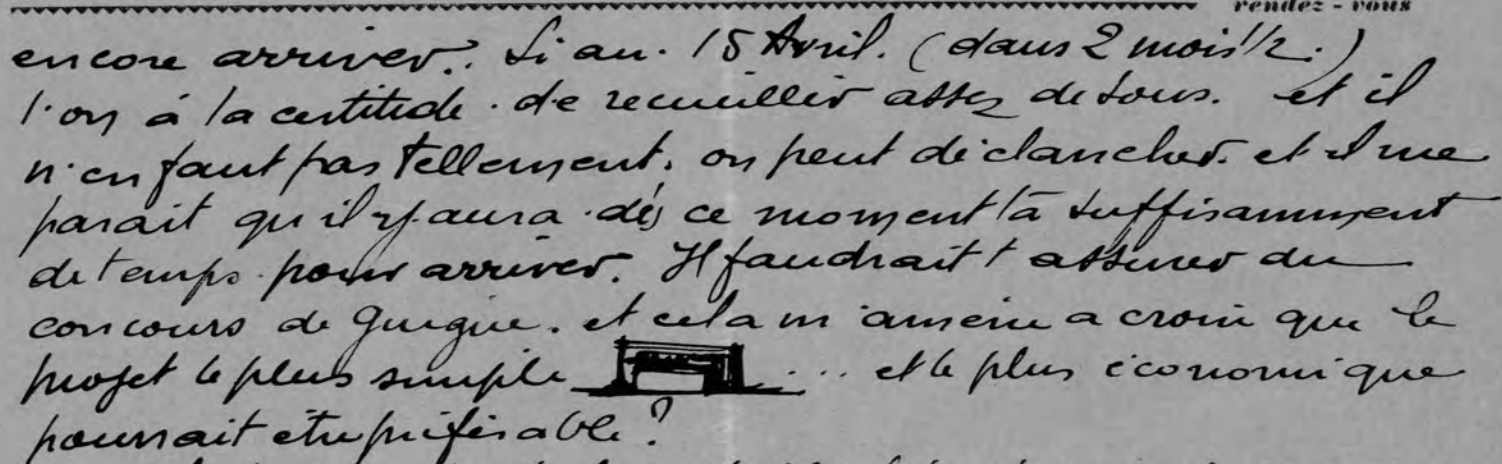 rendez-vous
encore arriver. Si au. 15 Avril. (dans 2 mois 1/2.)
l'on à la certitude. de recueillir assez de sous. et il
n'en faut pas tellement. on peut déclancher. et il me
parait qu'il y aura dès ce moment là suffisamment
de temps pour arriver. Il faudrait s'assurer du
concours de Guigue. et cela m'amène a croire que le
projet le plus simple ... et le plus économique
pourrait être préférable?